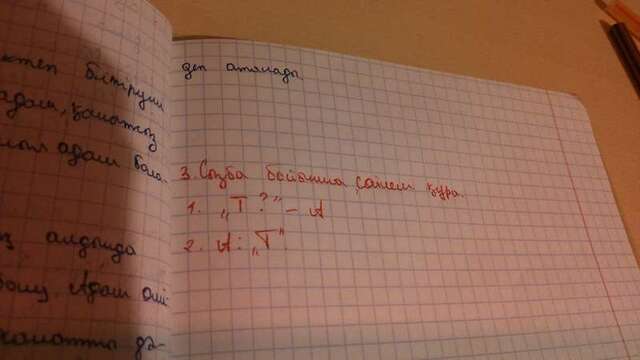 ктеп бітіруші
адам, қанатсыз
лып адам бола-
з алдында
болу. Адам
қанатты дә-
деп аталады.
3. Сызба бойынша сөйлем құра.
1. „Т ?" – А
2. А: „Т"